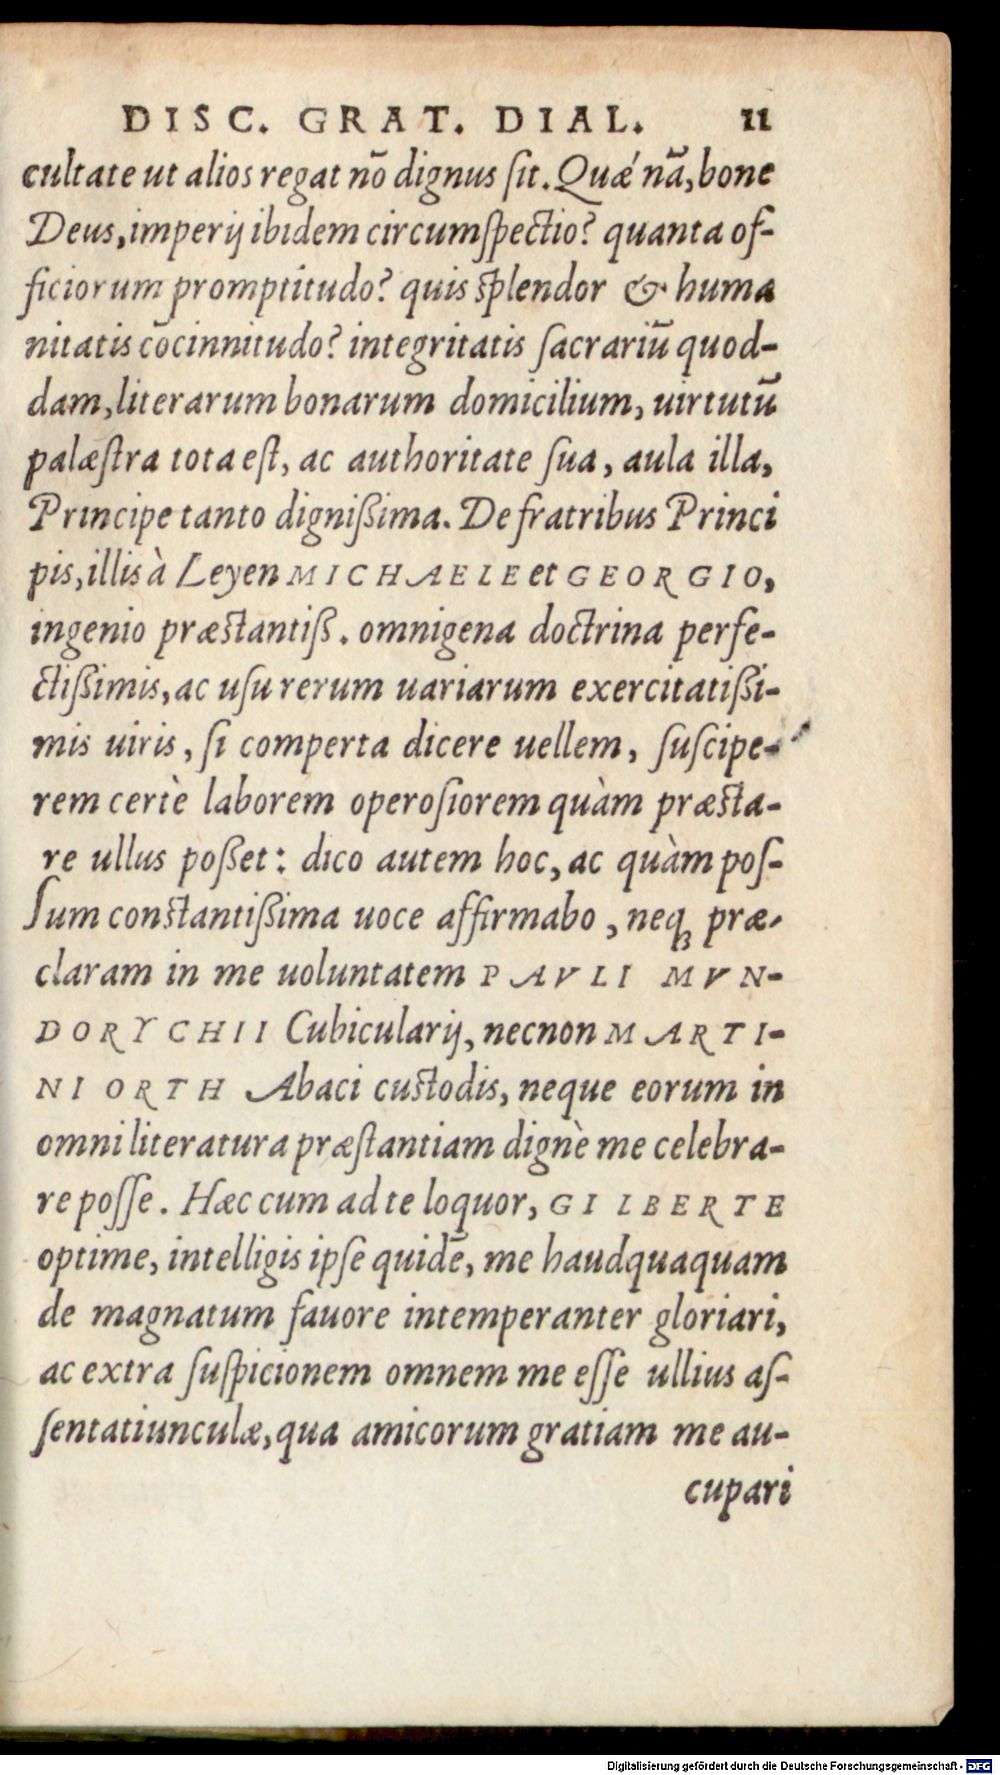 DISC. GRAT. DIAL. 11
cultate ut alios regat nō dignus ſit. Quǽ nā, bone
Deus, imperij ibidem circumſpectio? quanta of-
ficiorum promptitudo? quis ſplendor & huma
nitatis cōcinnitudo? integritatis ſacrariū quod-
dam, literarum bonarum domicilium, uirtutū
palæſtra tota eſt, ac authoritate ſua, aula illa,
Principe tanto digniſsima. De fratribus Princi
pis, illis à Leyen MICHAELE et GEORGIO,
ingenio præſtantiſs. omnigena doctrina perfe-
ctiſsimis, ac uſu rerum uariarum exercitatiſsi-
mis uiris, ſi comperta dicere uellem, ſuſcipe-
rem certè laborem operoſiorem quàm præſta-
re ullus poſset: dico autem hoc, ac quàm poſ-
ſum conſtantiſsima uoce affirmabo, neqꝫ præ-
claram in me uoluntatem PAVLI MVN-
DORYCHII Cubicularij, necnon MARTI-
NI ORTH Abaci cuſtodis, neque eorum in
omni literatura præſtantiam dignè me celebra-
re poſſe. Hæc cum ad te loquor, GILBERTE
optime, intelligis ipſe quidē, me haudquaquam
de magnatum fauore intemperanter gloriari,
ac extra ſuſpicionem omnem me eſſe ullius aſ-
ſentatiunculæ, qua amicorum gratiam me au-
cupari
Digitalisierung gefördert durch die Deutsche Forschungsgemeinschaft - DFG